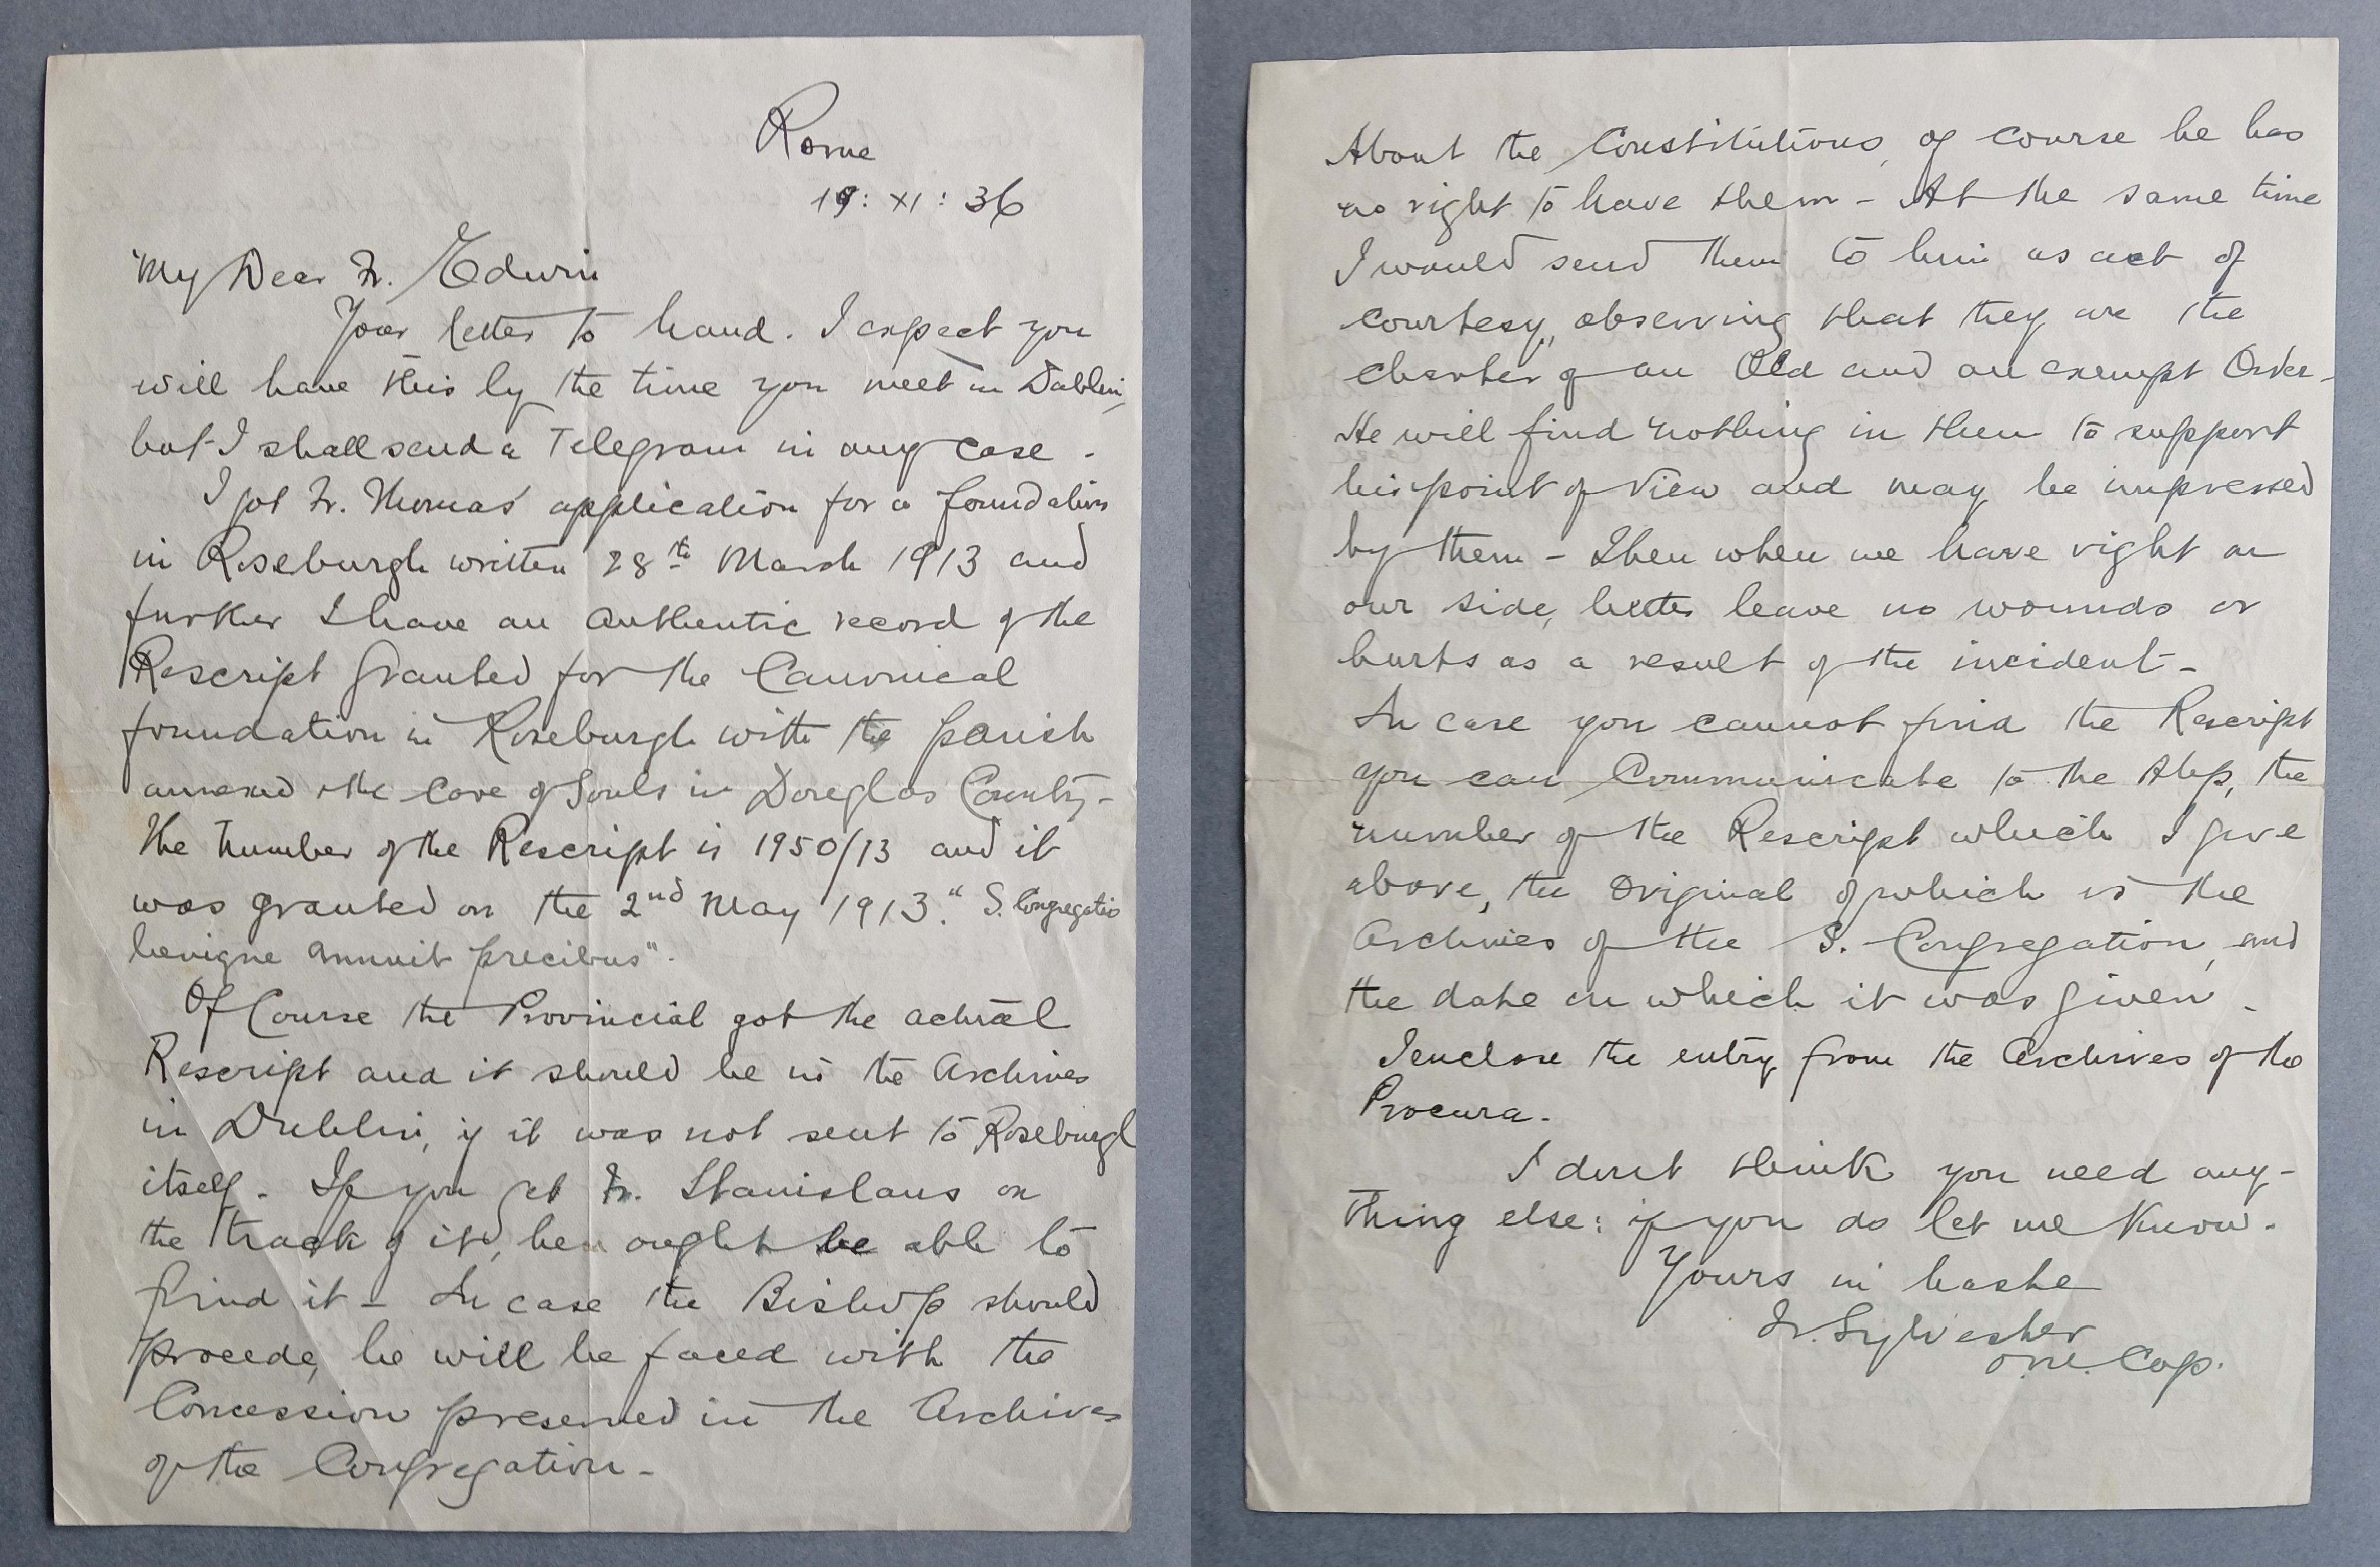 Rome
19: XI: 36
My Dear Fr. Edwin
Your letter to hand. I expect you
will have this by the time you meet in Dublin,
but I shall send a Telegram in any case.
I got Fr. Thomas' application for a foundation
in Roseburgh written 28th March 1913 and
further I have an authentic record of the
Rescript granted for the Canonical
foundation in Roseburgh with the parish
annexed & the care of Souls in Douglas County-
The number of the Rescript is 1950/13 and it
was granted on the 2nd May 1913. "S. Congregatio
benigne annuit precibus".
Of Course the Provincial got the actual
Rescript and it should be in the Archives
in Dublin, if it was not sent to Roseburgh
itself. If you get Fr. Stanislaus on
the track of it, he ought be able to
find it - In case the Bishop should
procede, he will be faced with the
Concession preserved in the Archives
of the Congregation -
About the Constitutions, of course he has
no right to have them - At the same time
I would send them to him as act of
courtesy, observing that they are the
charter of an Old and an exempt Order -
He will find nothing in them to support
his point of view and may be impressed
by them - Then when we have right on
our side, better leave no wounds or
hurts as a result of the incident -
In case you cannot find the Rescript
you can Communicate to the Abp, the
number of the Rescript which I give
above, the original of which is the
Archives of the S. Congregation, and
the date on which it was given -
I enclose the entry from the Archives of the
Procura -
I dont think you need any-
thing else: if you do let me know.
Yours in haste
Fr. Sylvester
O.M. Cap.